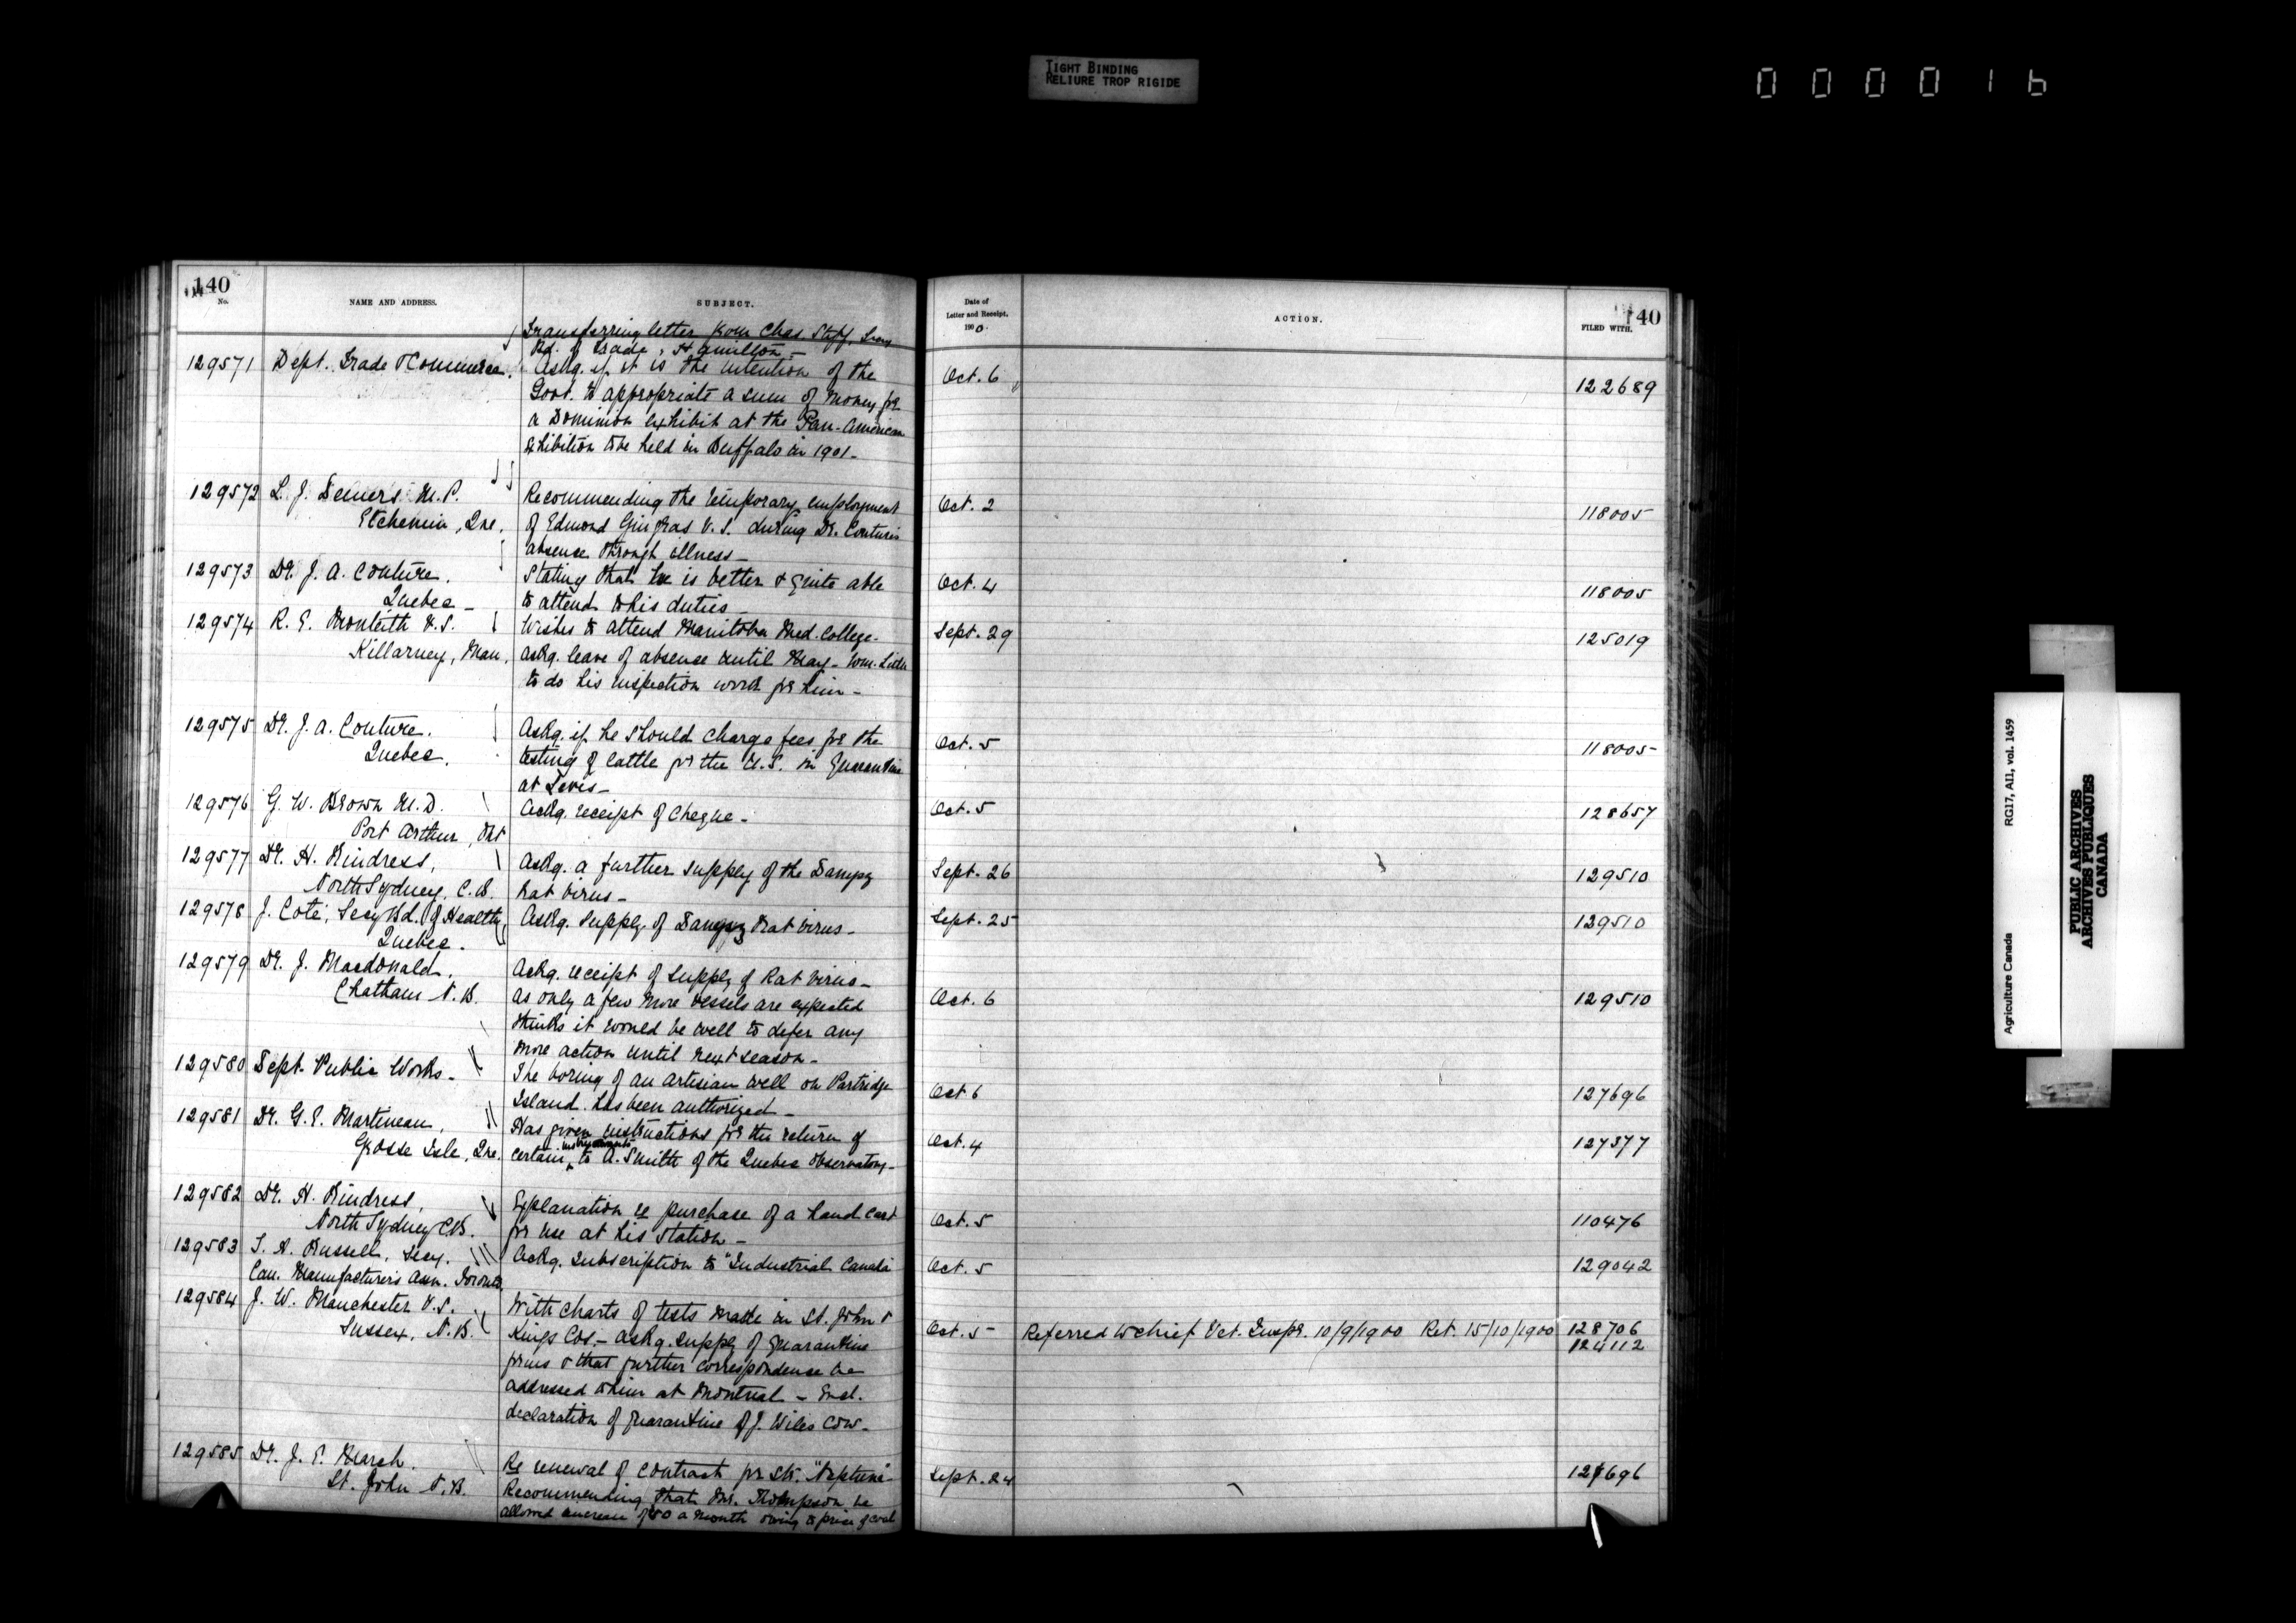 TIGHT BINDING
RELIURE TROP RIGIDE
000016
140
No.
NAME AND ADDRESS.
SUBJECT.
Date of
Letter and Receipt.
1900.
ACTION.
FILED WITH.
140
Transferring letter from Chas. Secy
Bd. of Trade, Hamilton -
129571 Dept. Trade & Commerce. Askg. if it is the intention of the Oct. 6 122689
Govt. to appropriate a sum of money for
a Dominion exhibit at the Pan-American
Exhibition to be held in Buffalo in 1901 -
129572 L. J. Demers M.P. Recommending the temporary employment Oct. 2 118005
Etchemin, Que. of Edmond Gingras V.S. during Dr. Couture's
absence through illness -
129573 Dr. J. A. Couture. Stating that he is better & quite able Oct. 4 118005
Quebec - to attend to his duties -
129574 R. E. Monteith V.S. Wishes to attend Manitoba Med. College. Sept. 29 125019
Killarney, Man. Askg. leave of absence until May - Wm.
to do his inspection work for him -
129575 Dr. J. A. Couture. Askg. if he should charge fees for the Oct. 5 118005
Quebec. testing of cattle for the U.S. in Quarantine
at Levis -
129576 G. W. Brown M.D. Ackg. receipt of cheque - Oct. 5 128657
Port Arthur, Ont
129577 Dr. H. Rindress, Askg. a further supply of the Danysz Sept. 26 129510
North Sydney, C.B. rat virus -
129578 J. Coté, Secy Bd. of Health, Askg. supply of Danysz rat virus - Sept. 25 129510
Quebec.
129579 Dr. J. Macdonald, Ackg. receipt of supply of Rat virus -
Chatham N.B. As only a few more vessels are expected Oct. 6 129510
thinks it would be well to defer any
more action until next season -
129580 Dept. Public Works - The boring of an artesian well on Partridge Oct 6 127696
Island has been authorized -
129581 Dr. G. E. Martineau, Has given instructions for the return of Oct. 4 127377
Grosse Isle, Que. certain instruments to A. Smith of the Quebec Observatory -
129582 Dr. H. Rindress, Explanation re purchase of a hand cart Oct. 5 110476
North Sydney C.B. for use at his station -
129583 T. A. Russell, Secy. Ackg. subscription to "Industrial Canada Oct. 5 129042
Can. Manufacturers Assn. Toronto
129584 J. W. Manchester V.S. With charts of tests made in St. John &
Sussex, N.B. Kings Cos. - Askg. supply of quarantine Oct. 5 Referred to Chief Vet. Inspr. 10/9/1900 Ret. 15/10/1900 128706
124112
forms & that further correspondence be
addressed to him at Montreal - Encl.
declaration of quarantine of J. Wiles cow -
129585 Dr. J. E. March. Re renewal of contract for Str. "Neptune" - Sept. 24 127696
St. John N.B. Recommending that Mr. Thompson be
allowed increase of $50 a month owing to price of coal
Agriculture Canada RG17, AII, vol. 1459
PUBLIC ARCHIVES
ARCHIVES PUBLIQUES
CANADA